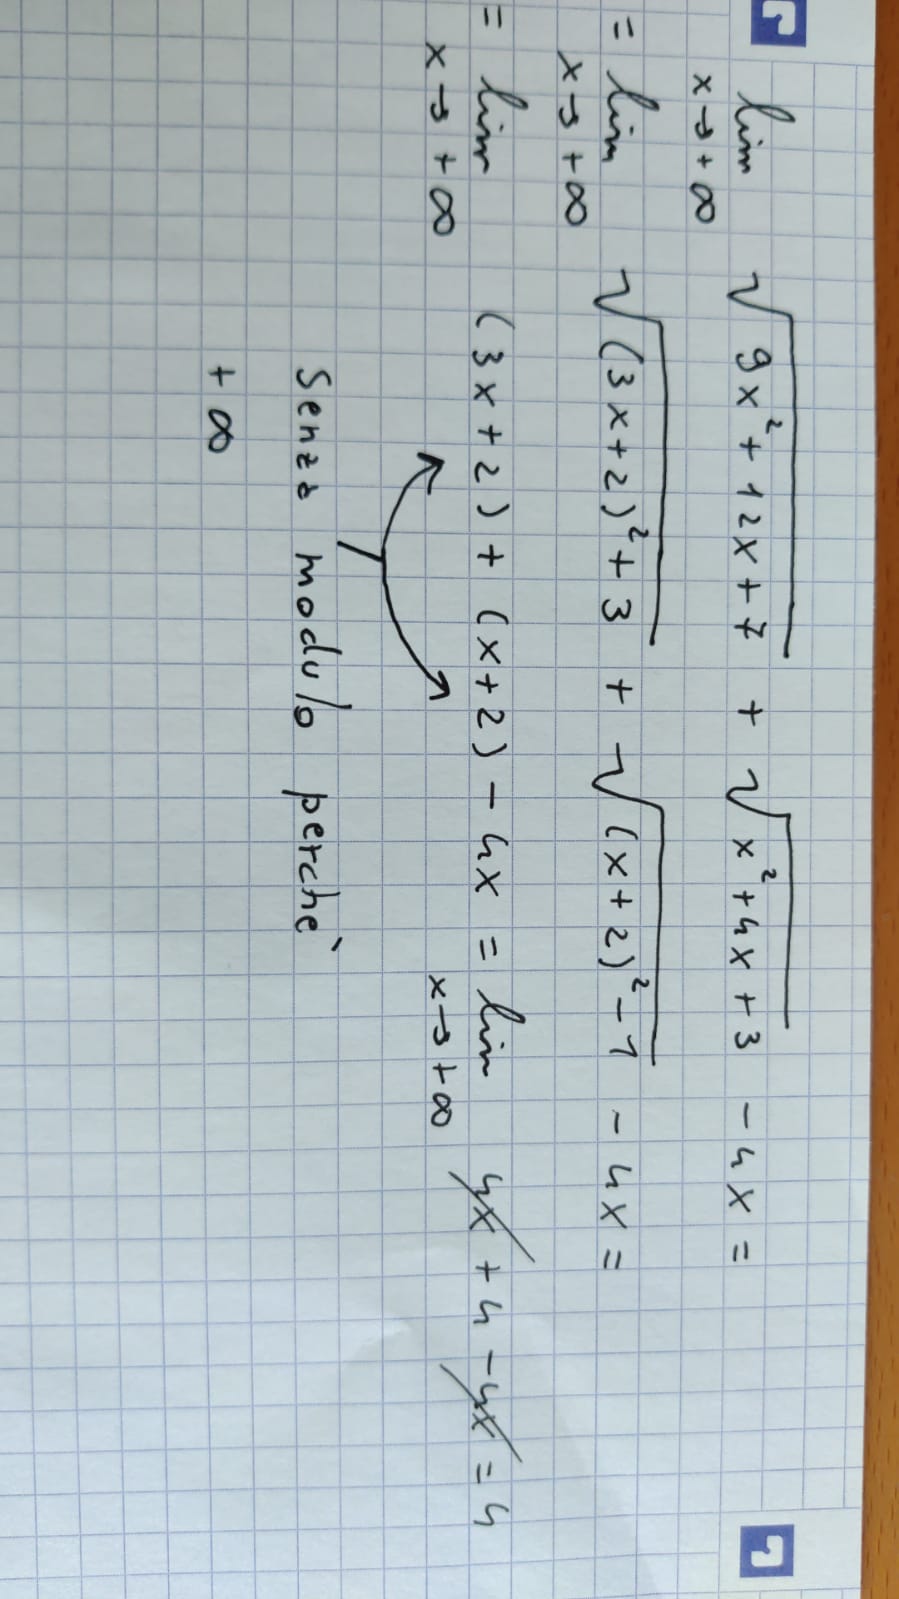 lim √(9x² + 12x + 7) + √(x² + 4x + 3) - 4x =
x → + ∞
= lim √((3x+2)² + 3) + √((x+2)² - 1) - 4x =
x → + ∞
= lim (3x+2) + (x+2) - 4x = lim 4x + 4 - 4x = 4
x → + ∞ x → + ∞
Senza modulo perchè
+ ∞